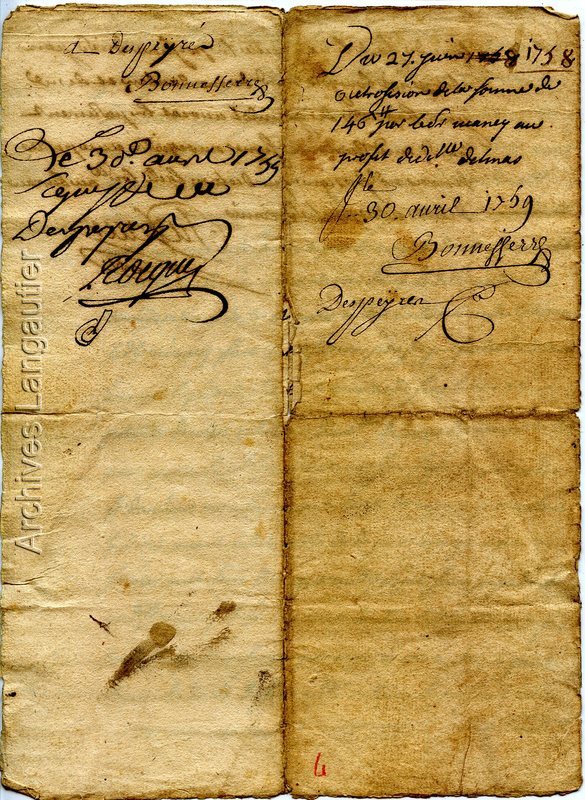 a despeyré
Bonnesserre
Le 30e. avril 1755
Despeyrat
Du 27. juin 1758 1758
retrosision de la somme de
146 tt par le sr maney au
profit de dlle delmas
le
30. avril 1759
Bonnesserre
Despeyren
Archives Langautier